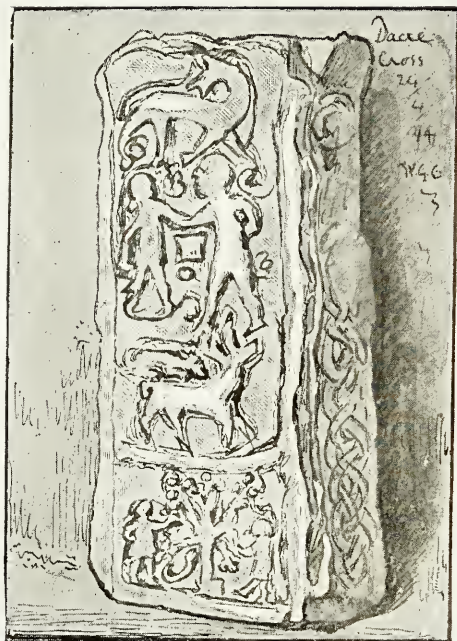 Dacre
Cross
24
4
94
W.G.C